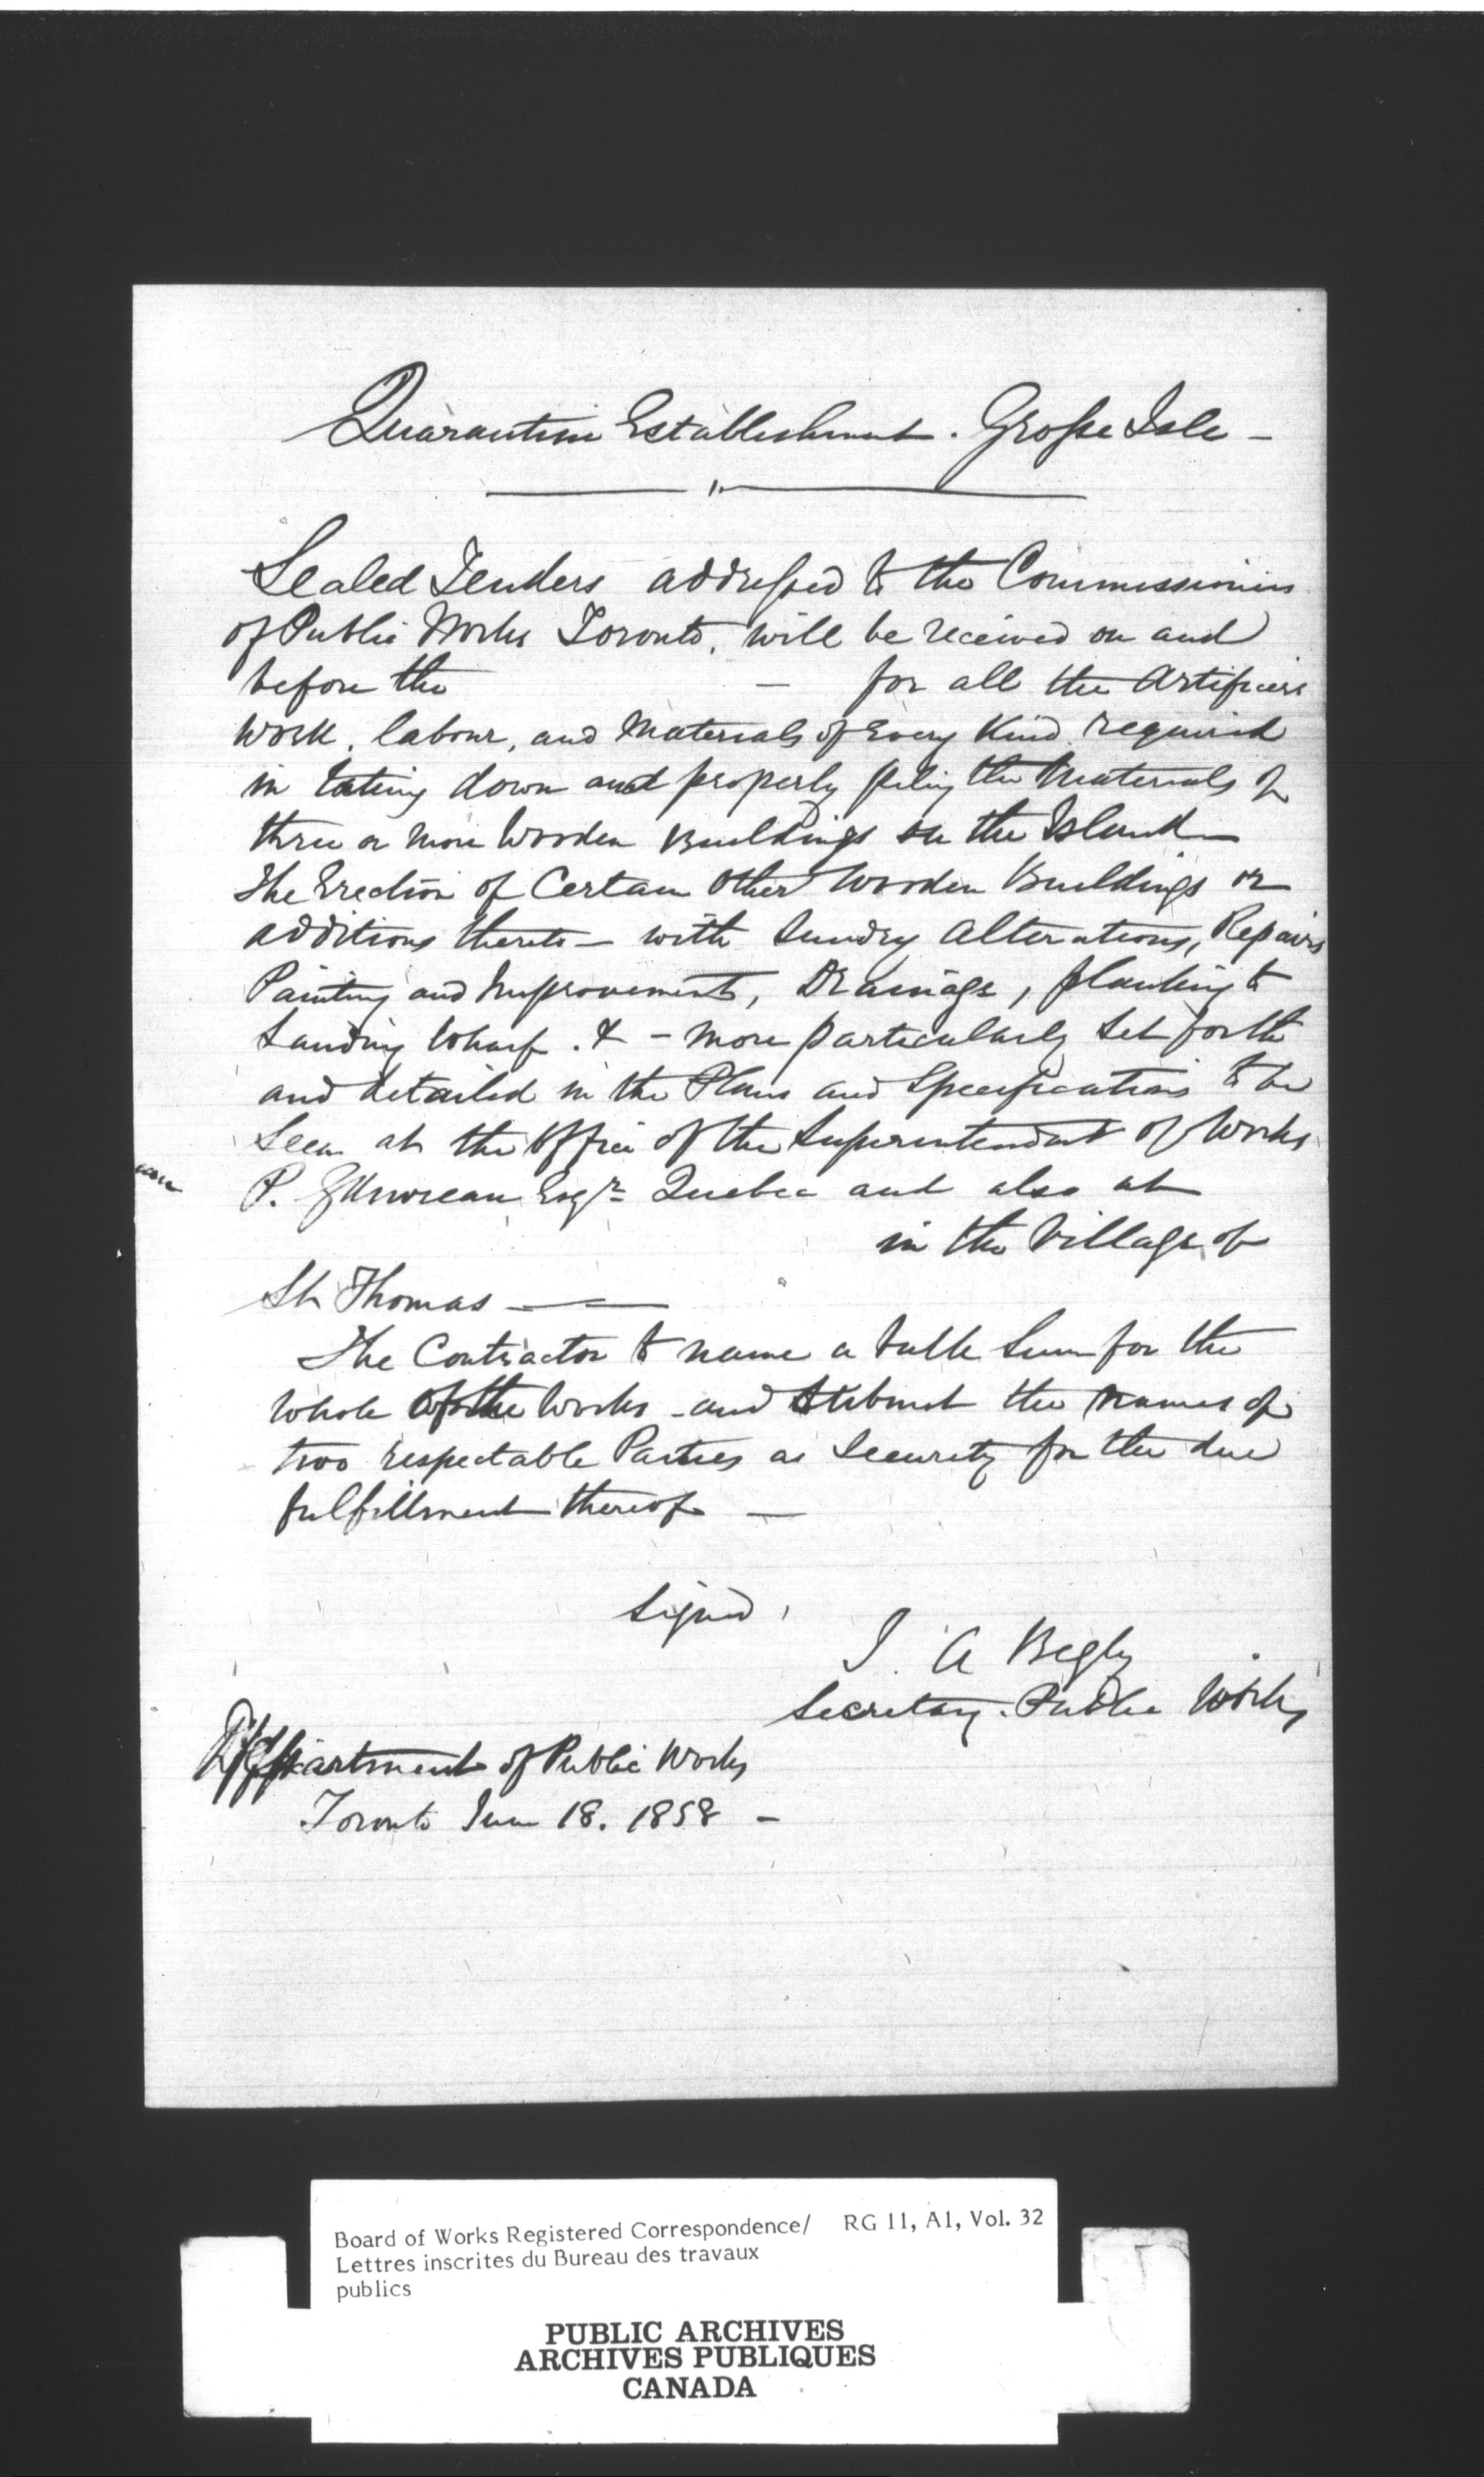 Quarantine Establishment. Grosse Isle –
Sealed Tenders addressed to the Commissioners
of Public Works Toronto, will be received on and
before the – for all the Artificers
work, labour, and Materials of Every Kind required
in taking down and properly piling the Materials of
three or more Wooden Buildings on the Island –
The Erection of Certain Other Wooden Buildings or
additions thereto – with Sundry Alterations, Repairs
Painting and Improvements, Drainage, planking to
Landing Wharf. & – More particularly Set forth
and detailed in the Plans and Specifications to be
Seen at the Office of the Superintendent of Works
P. Gauvreau Esqr. Quebec and also at
in the Village of
St Thomas —
The Contractor to name a bulk Sum for the
whole of the Works – and Submit the names of
two respectable Parties as Security for the due
fulfillment thereof —
Signed,
J. A Begly
Secretary. Public Works
Department of Public Works
Toronto June 18. 1858 –
Board of Works Registered Correspondence/ RG 11, A1, Vol. 32
Lettres inscrites du Bureau des travaux
publics
PUBLIC ARCHIVES
ARCHIVES PUBLIQUES
CANADA